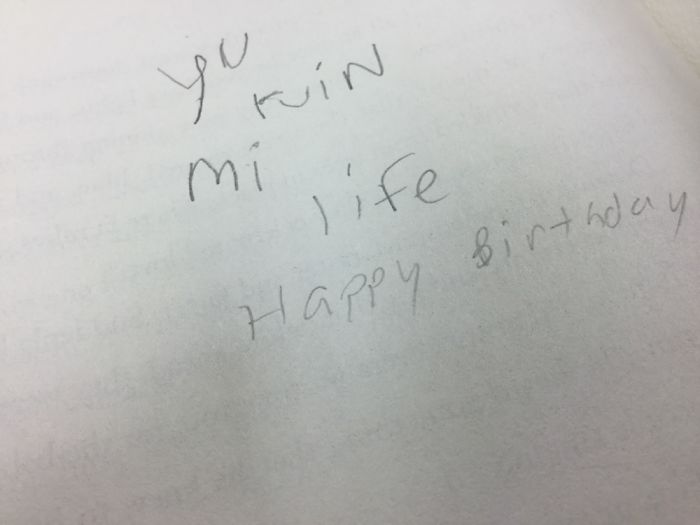 yu
ruiN
mi
life
Happy Birthday